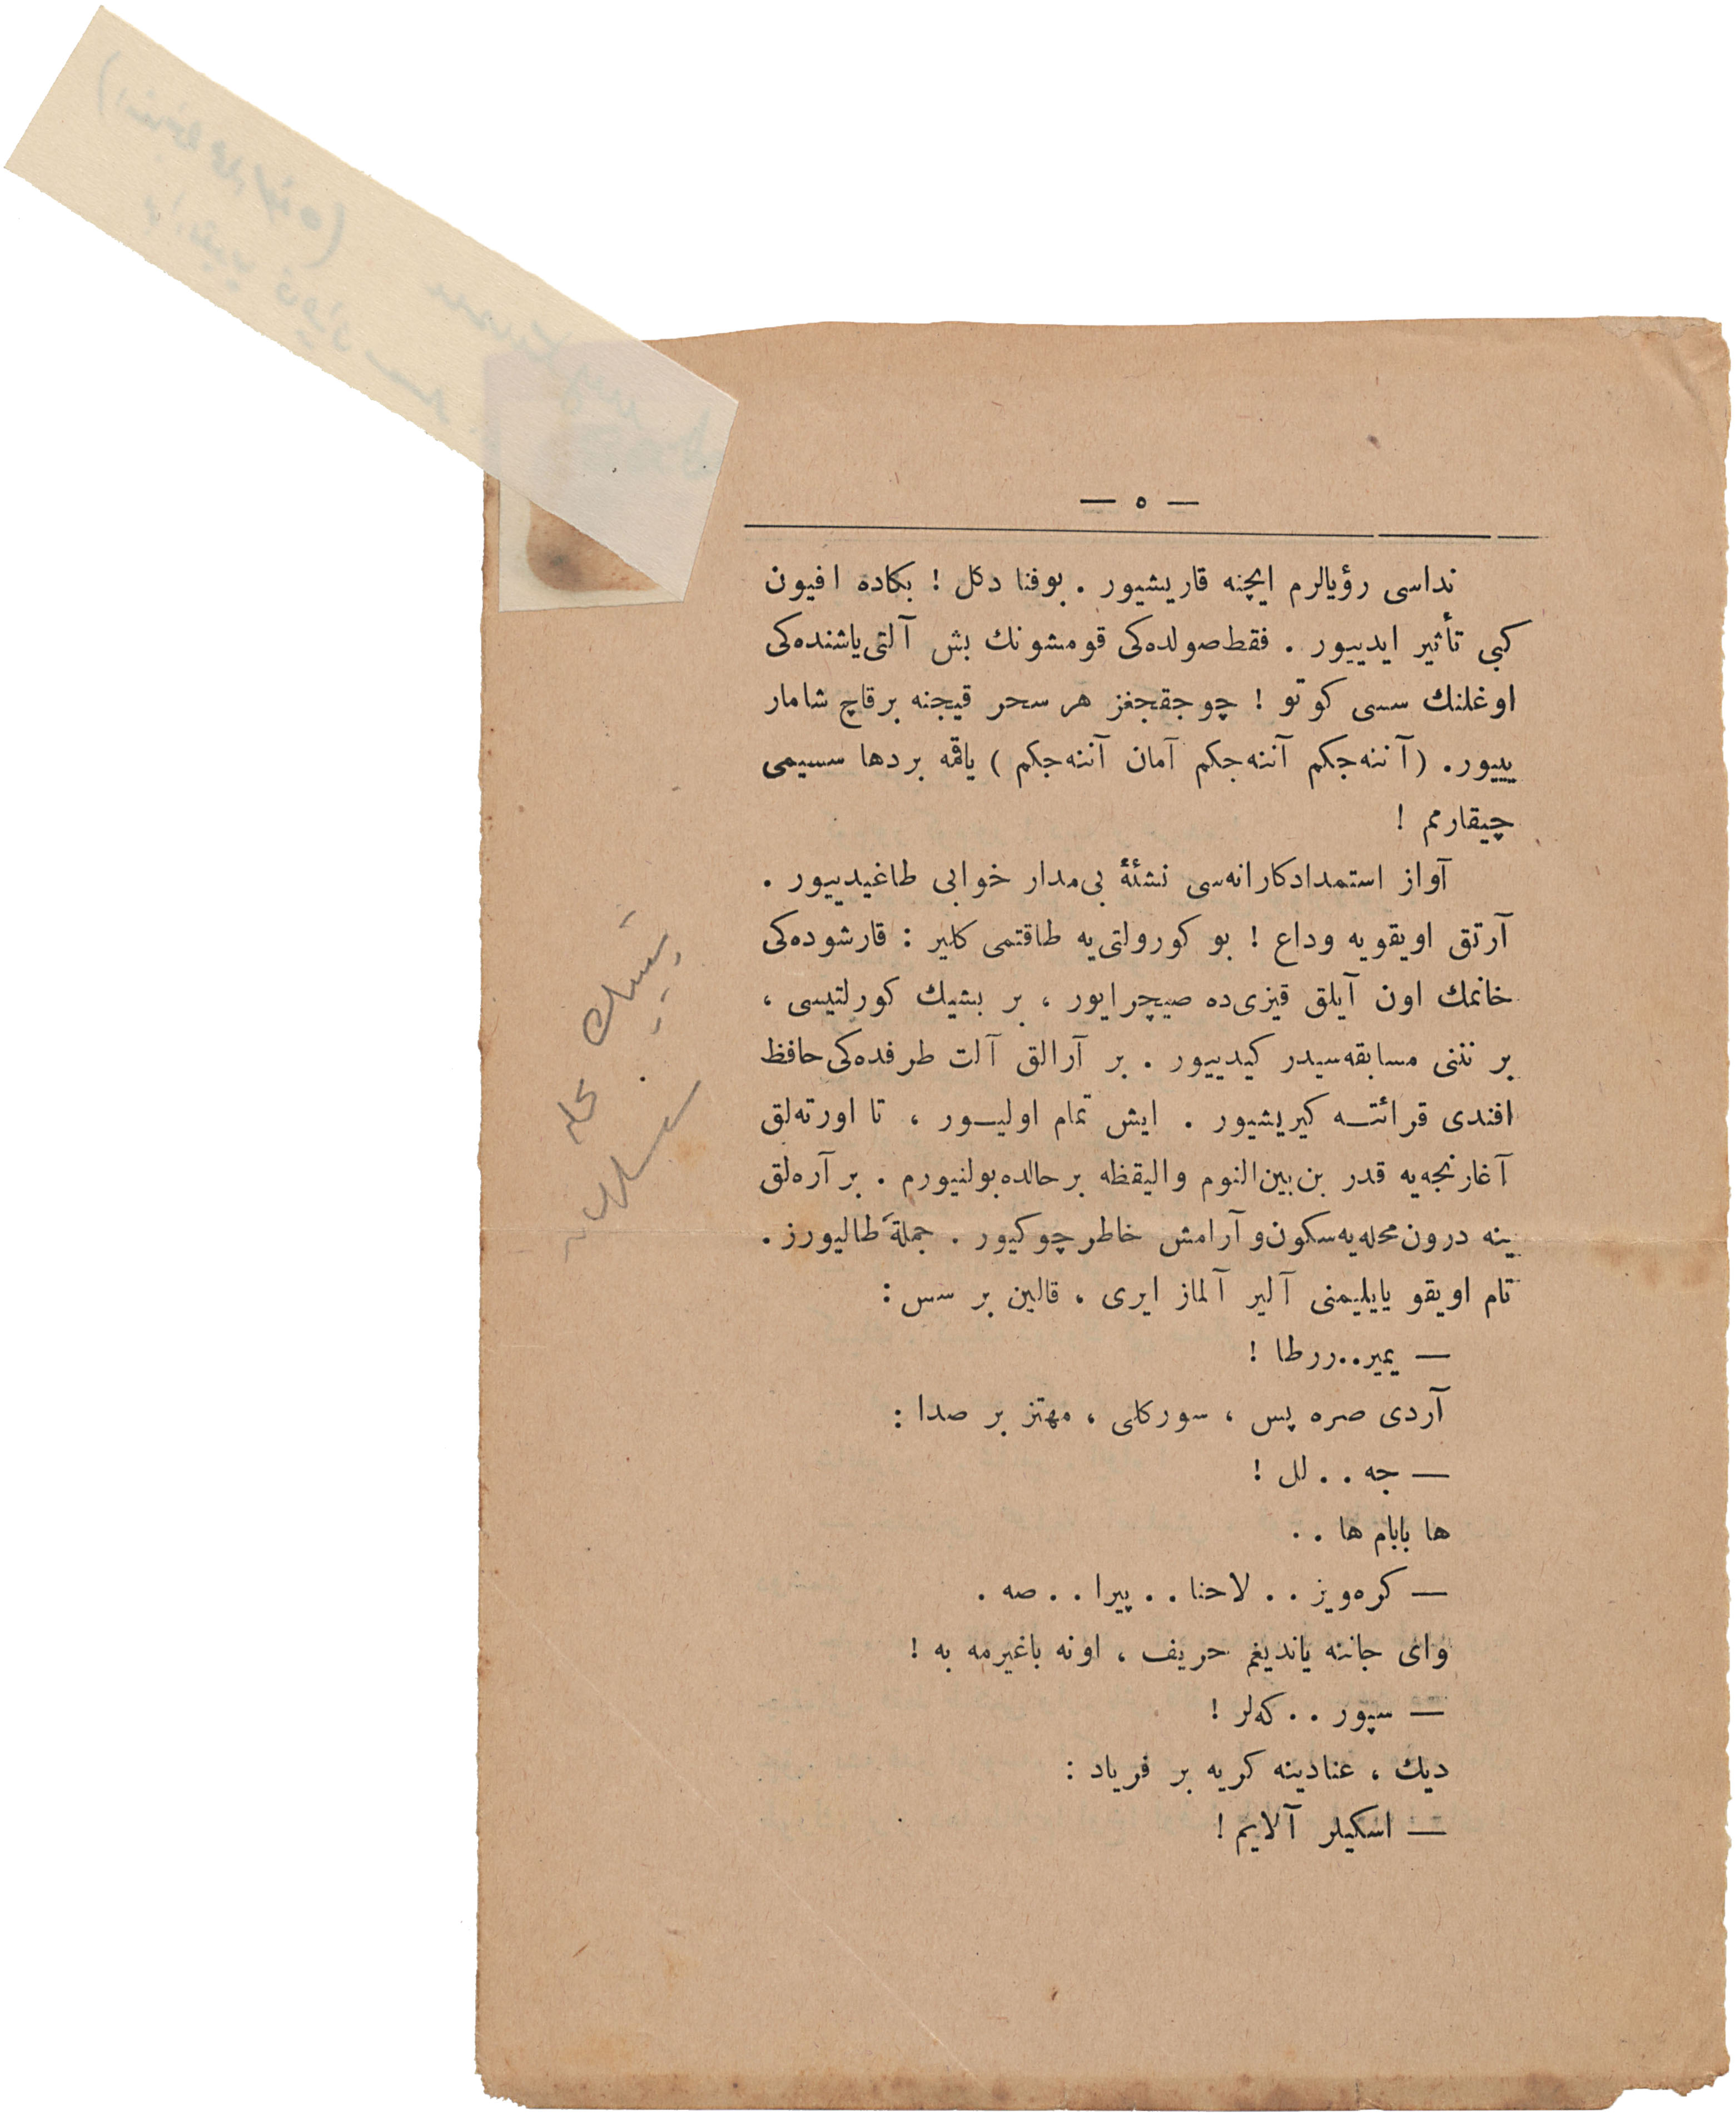 — ٥ —
نداسى رؤيالرم ايچنه قاريشيور . بوفنا دكل ! بكاده افيون
كبى تأثير ايدييور . فقط صولده‌كى قومشونك بش آلتى ياشنده‌كى
اوغلنك سسى كوتو ! چوجقجغز هر سحر قيچنه برقاچ شامار
يييور. (آننه‌جكم آننه‌جكم آمان آننه‌جكم) ياقمه بردها سسيمى
چيقارمم !
آواز استمدادكارانه‌سى نشئهٔ بى‌مدار خوابى طاغيدييور .
آرتق اويقويه وداع ! بو كورولتى‌يه طاقتمى كلير : قارشوده‌كى
خانمك اون آيلق قيزى‌ده صيچرايور ، بر بشيك كورلتيسى ،
بر ننى مسابقه‌سيدر كيدييور . بر آرالق آلت طرفده‌كى حافظ
افندى قرائتـه كيريشيور . ايش تمام اوليـور ، تا اورته‌لق
آغارنجه‌يه قدر بن بين‌النوم واليقظه برحالده بولنيورم . بر آره‌لق
ينه درون محله‌يه سكون و آرامش خاطر چوكيور . جملةً طاليورز .
تام اويقو يايليمنى آلير آلماز ايرى ، قالين بر سس :
— يمير..ررطا !
آردى صره پس ، سوركلى ، مهتز بر صدا :
— جه . . لل !
ها بابام ها . .
— كره‌ويز . . لاحنا . . پيرا . . صه .
واى جاننه يانديغم حريف ، اونه باغيرمه به !
— سپور . . كه‌لر !
ديك ، عنادينه كريه بر فرياد :
— اسكيلر آلايم !